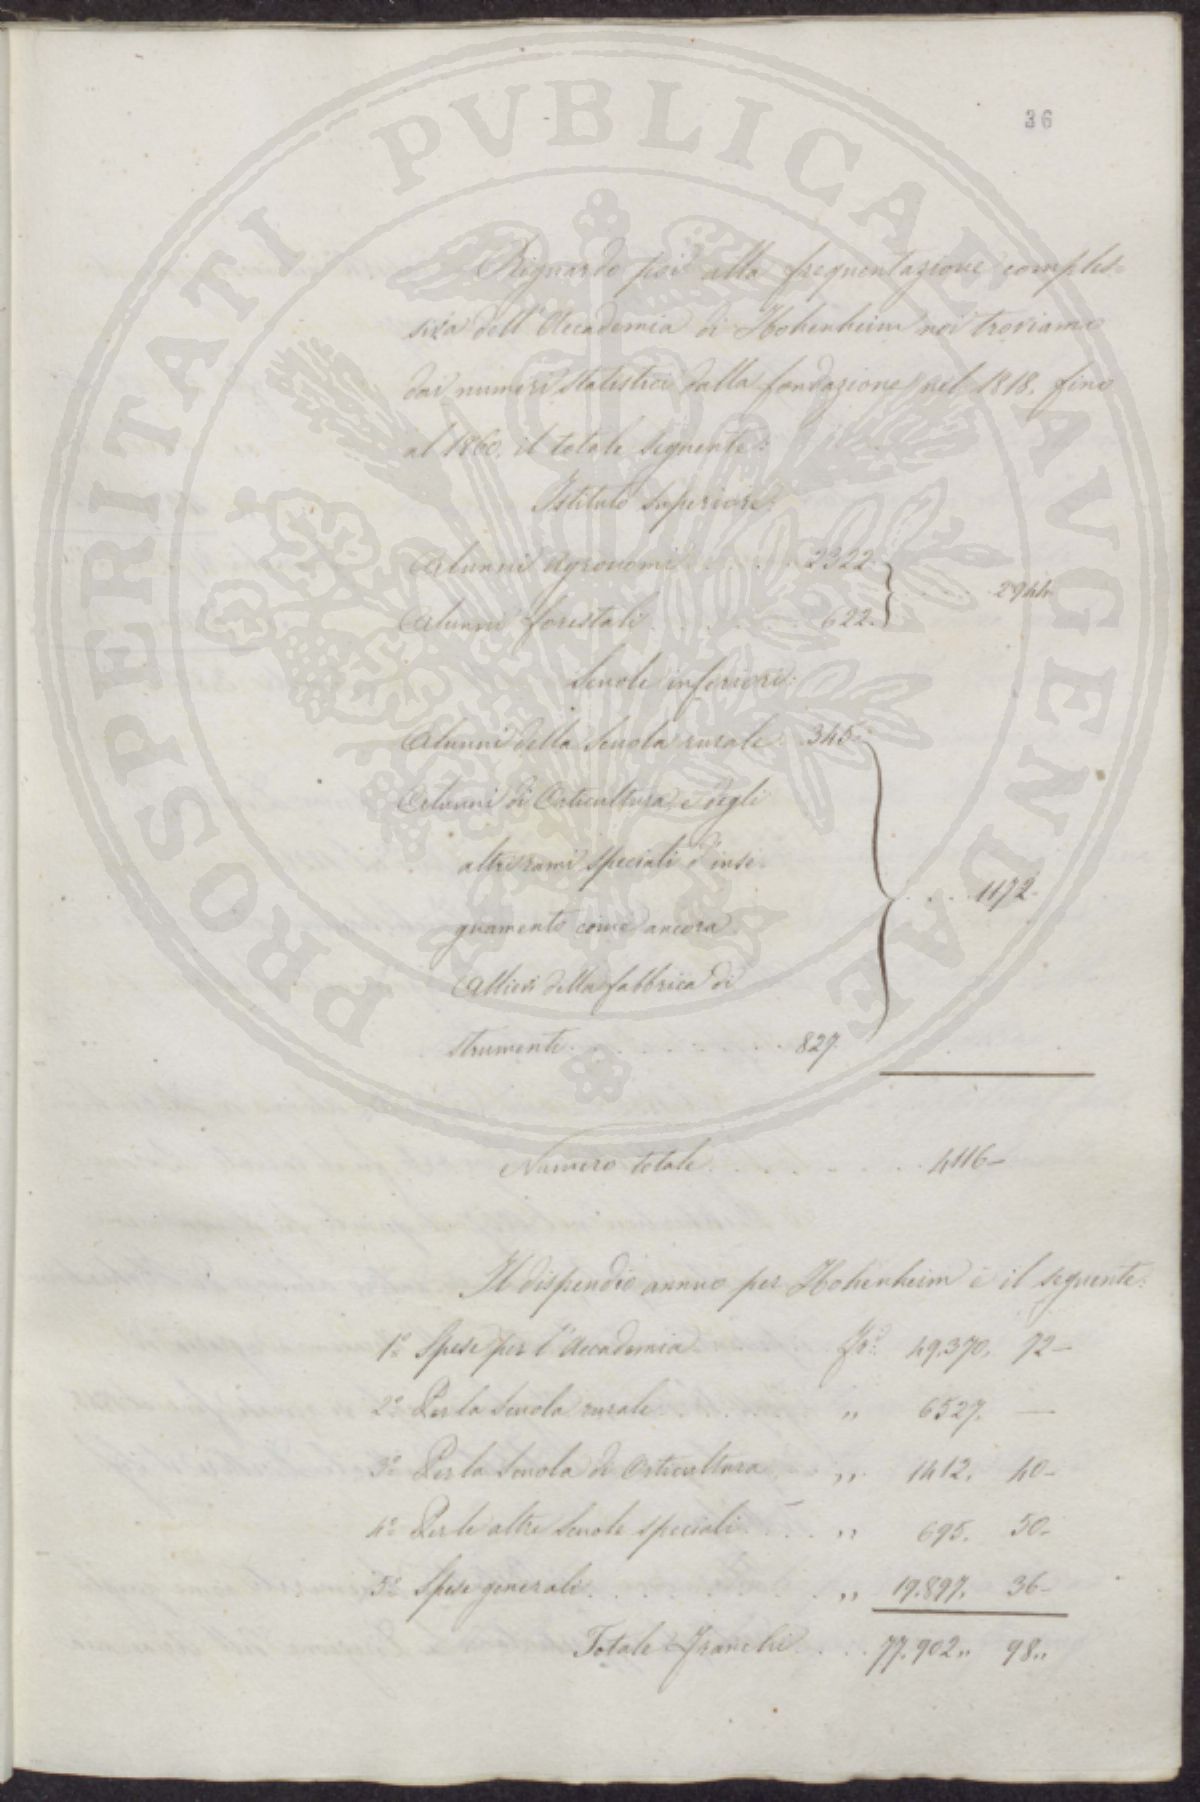 PROSPERITATI PVBLICAE AVGENDAE
36
Riguardo poi alla frequentazione comples=
siva dell'Accademia di Hohenheim noi troviamo
dai numeri statistici dalla fondazione nel 1818. fino
al 1860. il totale seguente:
Istituto superiore:
Alunni Agronomi . . . . . 2322. } . . . . . 2944.
Alunni forestali . . . . . . 622.
Scuole inferiori:
Alunni della Scuola rurale. 345.
Alunni di Orticultura, e degli
altri rami speciali d'inse-
gnamento come ancora } . . . . 1172.
Allievi della fabbrica di
strumenti. . . . . . . . . . 827.
Numero totale. . . . . . . . 4116—
Il dispendio annuo per Hohenheim è il seguente:
1° Spese per l'Accademia . . . . Fr: 49.370. 72—
2° Per la Scuola rurale . . . . . „ 6527. —
3° Per la Scuola di Orticultura . . „ 1412. 40—
4° Per le altre Scuole speciali . . . . „ 695. 50—
5° Spese generali . . . . . . . . „ 19.897. 36—
Totale Franchi . . . 77.902„ 98„